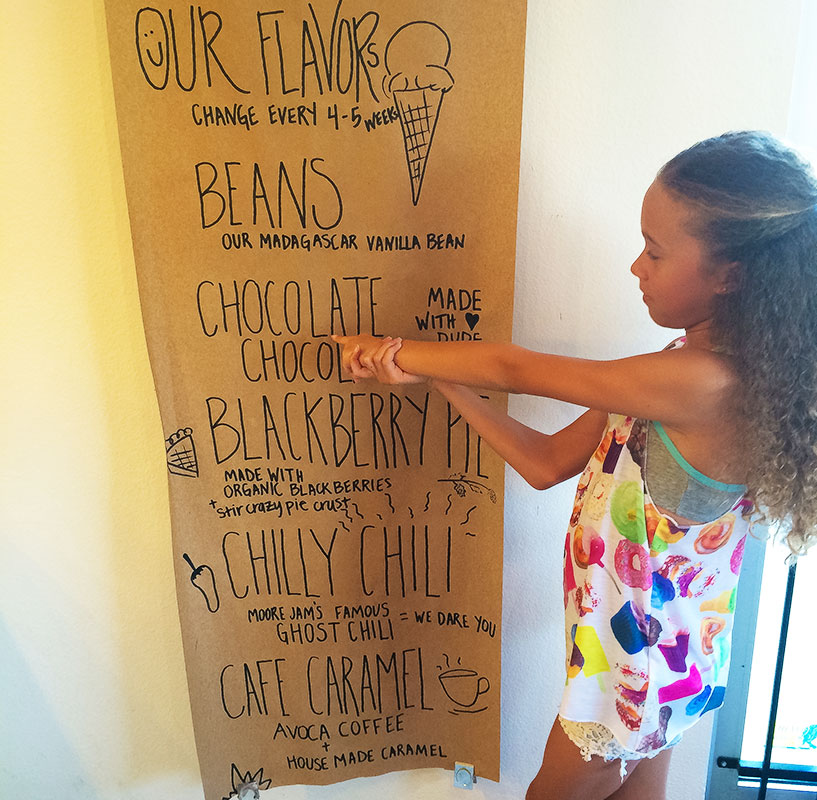 OUR FLAVORS
CHANGE EVERY 4-5 WEEKS
BEANS
OUR MADAGASCAR VANILLA BEAN
CHOCOLATE
MADE
WITH ♥
CHOCOL
BLACKBERRY PIE
MADE WITH
ORGANIC BLACKBERRIES
+ stir crazy pie crust
CHILLY CHILI
MOORE JAM'S FAMOUS
GHOST CHILI = WE DARE YOU
CAFE CARAMEL
AVOCA COFFEE
+
HOUSE MADE CARAMEL